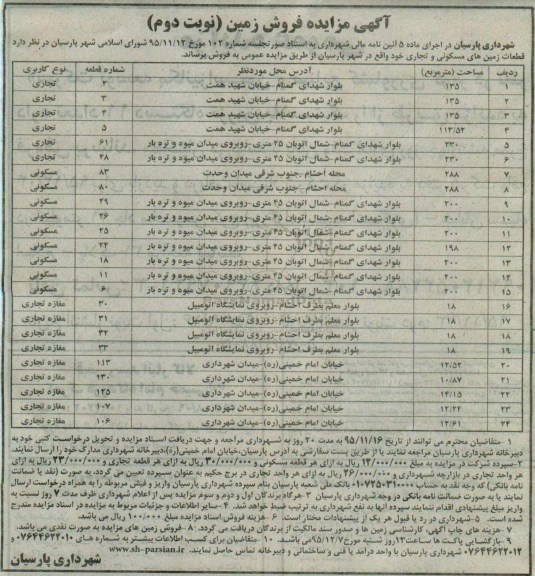 آگهی مزایده فروش زمین (نوبت دوم)
شهرداری پارسیان در اجرای ماده ۵ آئین نامه مالی شهرداری به استناد صورتجلسه شماره ۱۰۲ مورخ ۹۵/۱۱/۱۲ شورای اسلامی شهر پارسیان در نظر دارد
قطعات زمین های مسکونی و تجاری خود واقع در شهر پارسیان از طریق مزایده عمومی به فروش برساند.
ردیف مساحت (مترمربع) آدرس محل موردنظر شماره قطعه نوع کاربری
۱ ۱۳۵ بلوار شهدای گمنام-خیابان شهید همت ۲ تجاری
۲ ۱۳۵ بلوار شهدای گمنام-خیابان شهید همت ۳ تجاری
۳ ۱۳۵ بلوار شهدای گمنام-خیابان شهید همت تجاری
۴ ۱۱۲/۵۲ بلوار شهدای گمنام-خیابان شهید همت ۵ تجاری
۵ ۲۳۰ بلوار شهدای گمنام-شمال اتوبان ۴۵ متری-روبروی میدان میوه و تره بار ۶۱ تجاری
۶ ۲۳۰ بلوار شهدای گمنام-شمال اتوبان ۴۵ متری-روبروی میدان میوه و تره بار ۲۸ تجاری
۷ ۲۸۸ محله احشام-جنوب شرقی میدان وحدت ۸۳ مسکونی
۸ ۲۸۸ محله احشام-جنوب شرقی میدان وحدت ۸۰ مسکونی
۹ ۲۰۰ بلوار شهدای گمنام-شمال اتوبان ۴۵ متری-روبروی میدان میوه و تره بار ۲۹ مسکونی
۱۰ ۲۰۰ بلوار شهدای گمنام-شمال اتوبان ۴۵ متری-روبروی میدان میوه و تره بار ۲۶ مسکونی
۱۱ ۲۰۰ بلوار شهدای گمنام-شمال اتوبان ۴۵ متری-روبروی میدان میوه و تره بار ۲۵ مسکونی
۱۲ ۱۹۸ بلوار شهدای گمنام-شمال اتوبان ۴۵ متری-روبروی میدان میوه و تره بار ۲۴ مسکونی
۱۳ ۲۰۰ بلوار شهدای گمنام-شمال اتوبان ۴۵ متری-روبروی میدان میوه و تره بار ۱۸ مسکونی
۱۴ ۲۰۰ بلوار شهدای گمنام-شمال اتوبان ۴۵ متری-روبروی میدان میوه و تره بار ۱۱ مسکونی
۱۵ ۲۰۰ بلوار شهدای گمنام-شمال اتوبان ۴۵ متری-روبروی میدان میوه و تره بار ۶ مسکونی
۱۶ ۱۸ بلوار معلم بطرف احشام-روبروی نمایشگاه اتومبیل ۳۰ مغازه تجاری
۱۷ ۱۸ بلوار معلم بطرف احشام-روبروی نمایشگاه اتومبیل ۳۱ مغازه تجاری
۱۸ ۱۸ بلوار معلم بطرف احشام-روبروی نمایشگاه اتومبیل ۳۲ مغازه تجاری
۱۹ ۱۸ بلوار معلم بطرف احشام-روبروی نمایشگاه اتومبیل ۳۳ مغازه تجاری
۲۰ ۱۲/۵۲ خیابان امام خمینی(ره)-میدان شهرداری ۱۱۳ مغازه تجاری
۲۱ ۱۰/۸۷ خیابان امام خمینی(ره)-میدان شهرداری ۱۳۰ مغازه تجاری
۲۲ ۱۴/۱۵ خیابان امام خمینی(ره)-میدان شهرداری ۱۲۵ مغازه تجاری
۲۳ ۱۲/۲۲ خیابان امام خمینی(ره)-میدان شهرداری ۱۰۷ مغازه تجاری
۲۴ ۱۲/۶۱ خیابان امام خمینی(ره)-میدان شهرداری ۱۰۶ مغازه تجاری
۱- متقاضیان محترم می توانند از تاریخ ۹۵/۱۱/۱۶ به مدت ۲۰ روز به شهرداری مراجعه و جهت دریافت اسناد مزایده و تحویل درخواست کتبی خود به
دبیرخانه شهرداری پارسیان مراجعه نمایند یا از طریق پست سفارشی به آدرس پارسیان،خیابان امام خمینی(ره)،دبیرخانه شهرداری مدارک خود را ارسال نمایند.
۲-سپرده شرکت در مزایده به مبلغ ۱۲/۰۰۰/۰۰۰ ریال به ازای هر قطعه مسکونی و ۳۰/۰۰۰/۰۰۰ ریال به ازای هر قطعه تجاری و ۲۳/۰۰۰/۰۰۰ ریال به ازای
هر واحد تجاری در بازارچه شهرداری و ۴۶/۰۰۰/۰۰۰ ریال به ازای هر واحد تجاری در برج حکیم به عنوان سپرده تعیین می گردد، به صورت (نقد یا ضمانت
نامه بانکی) که وجه نقد به حساب بانک ملی شعبه پارسیان بنام سپرده شهرداری پارسیان واریز و فیش مربوطه را به همراه درخواست ارسال
نمایند یا به صورت ضمانت نامه بانکی در وجه شهرداری پارسیان ۳-هرگاه برندگان اول و دوم و سوم مزایده پس از اعلام شهرداری ظرف مدت ۷ روز نسبت به
واریز مبلغ پیشنهادی اقدام ننمایند سپرده آنها به نفع شهرداری به ترتیب ضبط خواهد شد. ۴-سایر اطلاعات و جزئیات مربوط به مزایده در اسناد مزایده مندرج
شده است. ۵-شهرداری در رد یا قبول هر یک از پیشنهادات مختار است. ۶- هزینه فروش اسناد مزایده مبلغ ۱۰۰/۰۰۰ ریال می باشد.
۷-هزینه های چاپ آگهی، کارشناسی زمین ها و صدور سند مالکیت از برندگان دریافت می گردد. ۸- فروش زمین های مزایده به صورت نقدی می باشد.
۹-بازگشایی پاکت ها ساعت ۱۲ روز شنبه مورخ ۹۵/۱۲/۷ می باشد. ۱۰-متقاضیان برای کسب اطلاعات بیشتر به شماره های ۰۷۶۴۴۶۲۲۰۱۰ و
۰۷۶۴۴۶۲۲۰۱۲ شهرداری پارسیان با واحد درآمد یا فنی و ساختمانی و دبیرخانه تماس حاصل نمایند. www.sh-parsian.ir
شهرداری پارسیان